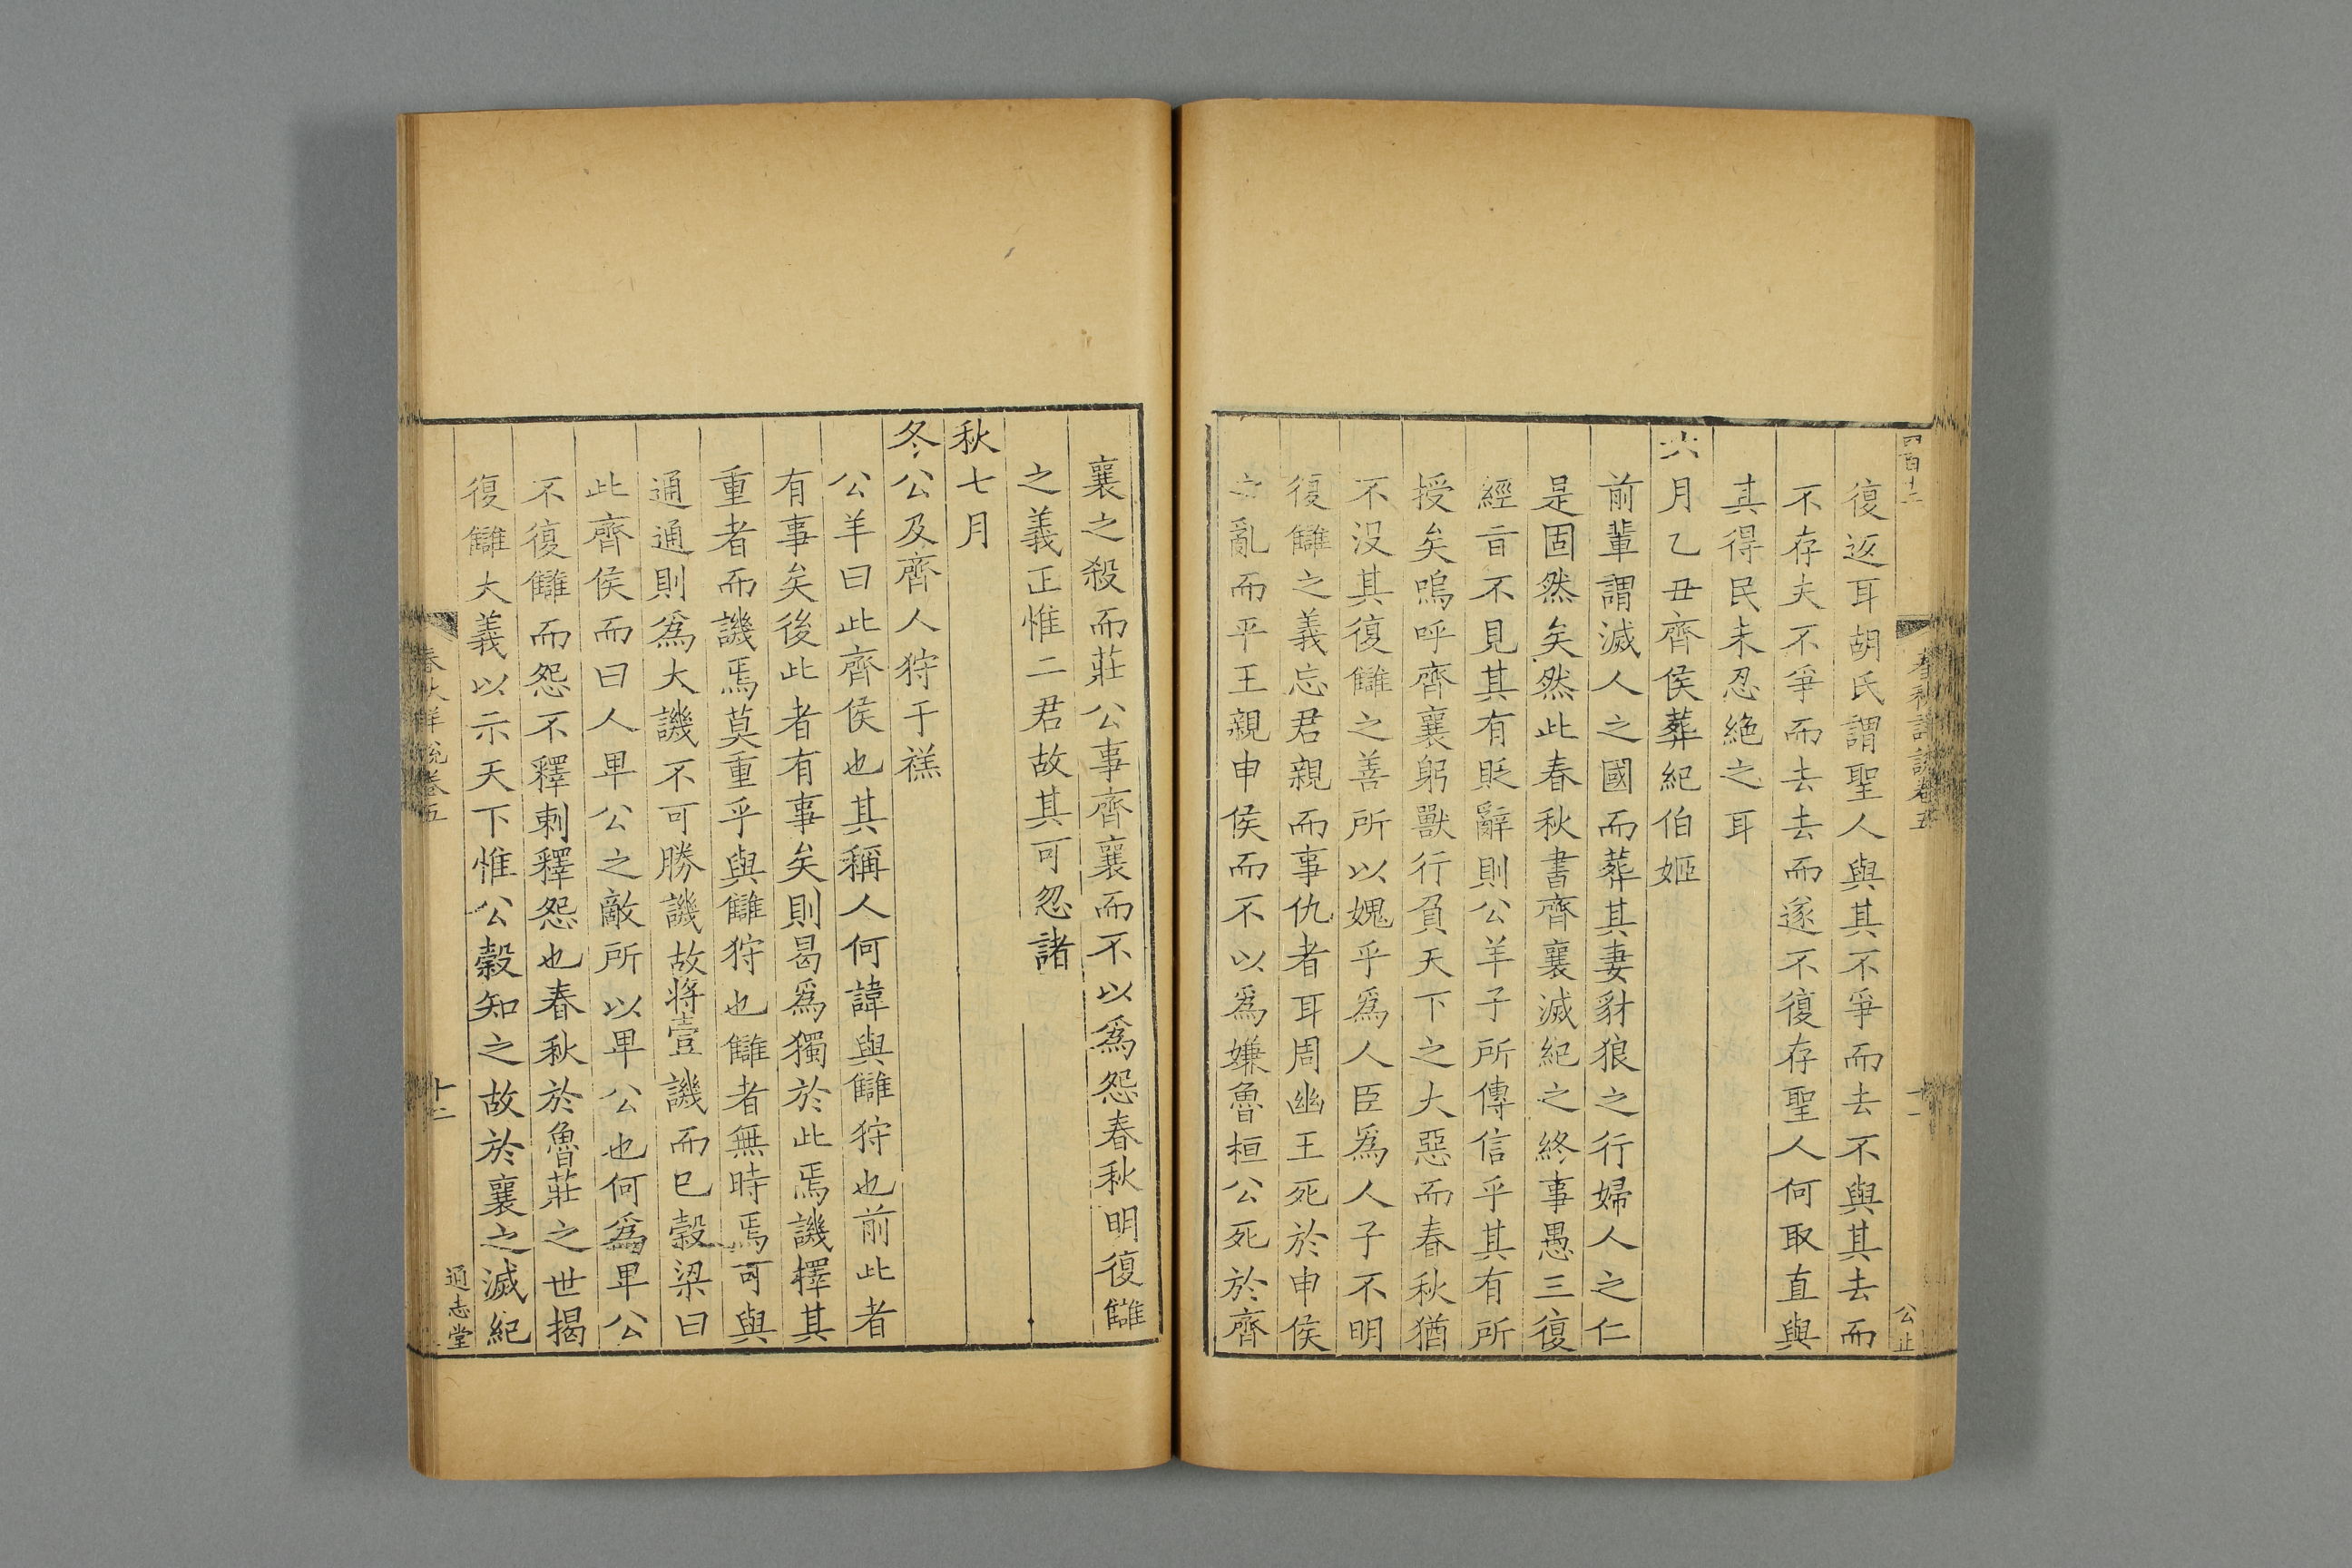 復返耳胡氏謂聖人與其不爭而去不與其去而
不存夫不爭而去去而遂不復存聖人何取直與
其得民未忍絶之耳
六月乙丑齊侯葬紀伯姬
前輩謂滅人之國而葬其妻豺狼之行婦人之仁
是固然矣然此春秋書齊襄滅紀之終事愚三復
經旨不見其有貶辭則公羊子所傳信乎其有所
授矣嗚呼齊襄躬獸行負天下之大惡而春秋猶
不没其復讎之善所以媿乎爲人臣爲人子不明
復讎之義忘君親而事仇者耳周幽王死於申侯
之亂而平王親申侯而不以爲嫌魯桓公死於齊
襄之殺而莊公事齊襄而不以爲怨春秋明復讎
之義正惟二君故其可忽諸
秋七月
冬公及齊人狩于禚
公羊曰此齊侯也其稱人何諱與讎狩也前此者
有事矣後此者有事矣則曷爲獨於此焉譏擇其
重者而譏焉莫重乎與讎狩也讎者無時焉可與
通通則爲大譏不可勝譏故将壹譏而已穀梁曰
此齊侯而曰人卑公之敵所以卑公也何爲卑公
不復讎而怨不釋刺釋怨也春秋於魯莊之世揭
復讎大義以示天下惟公穀知之故於襄之滅紀
春秋詳說卷五
十二
通志堂